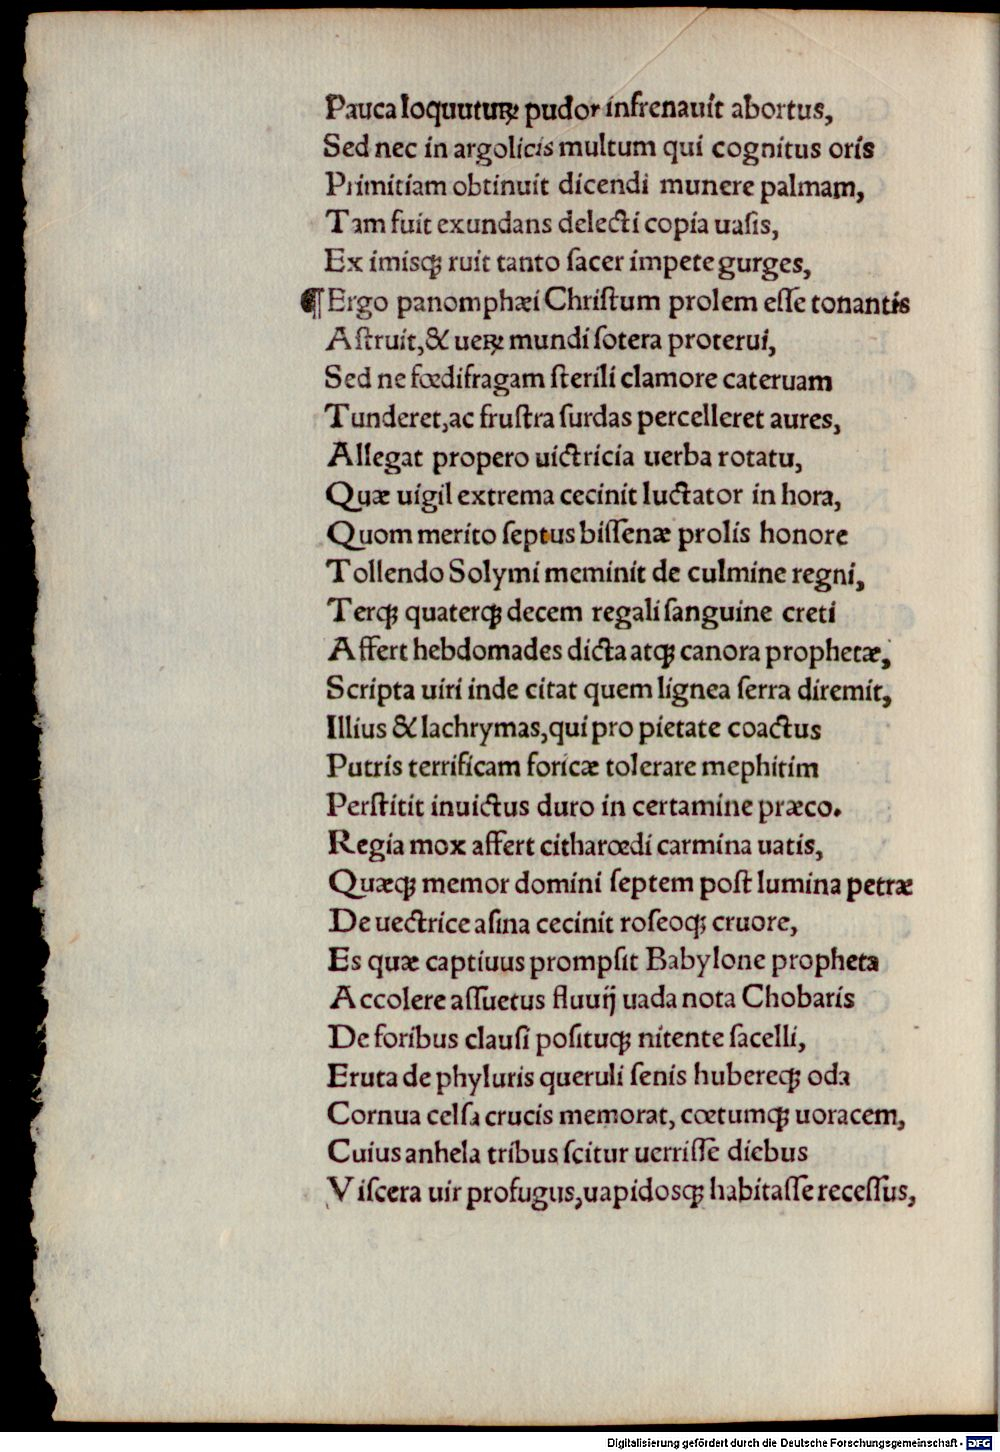 Pauca loquuturꝝ pudor infrenauit abortus,
Sed nec in argolicis multum qui cognitus oris
Primitiam obtinuit dicendi munere palmam,
Tam fuit exundans delecti copia uasis,
Ex imisqꝫ ruit tanto sacer impete gurges,
¶Ergo panomphæi Christum prolem esse tonantis
Astruit,& ueꝝ mundi sotera proterui,
Sed ne fœdifragam sterili clamore cateruam
Tunderet,ac frustra surdas percelleret aures,
Allegat propero uictricia uerba rotatu,
Quæ uigil extrema cecinit luctator in hora,
Quom merito septus bissenæ prolis honore
Tollendo Solymi meminit de culmine regni,
Terqꝫ quaterqꝫ decem regali sanguine creti
Affert hebdomades dicta atqꝫ canora prophetæ,
Scripta uiri inde citat quem lignea serra diremit,
Illius & lachrymas,qui pro pietate coactus
Putris terrificam foricæ tolerare mephitim
Perstitit inuictus duro in certamine præco.
Regia mox affert citharœdi carmina uatis,
Quæqꝫ memor domini septem post lumina petræ
De uectrice asina cecinit roseoqꝫ cruore,
Es quæ captiuus prompsit Babylone propheta
Accolere assuetus fluuij uada nota Chobaris
De foribus clausi posituqꝫ nitente sacelli,
Eruta de phyluris queruli senis hubereqꝫ oda
Cornua celsa crucis memorat, cœtumqꝫ uoracem,
Cuius anhela tribus scitur uerrisse diebus
Viscera uir profugus,uapidosqꝫ habitasse recessus,
Digitalisierung gefördert durch die Deutsche Forschungsgemeinschaft - DFG